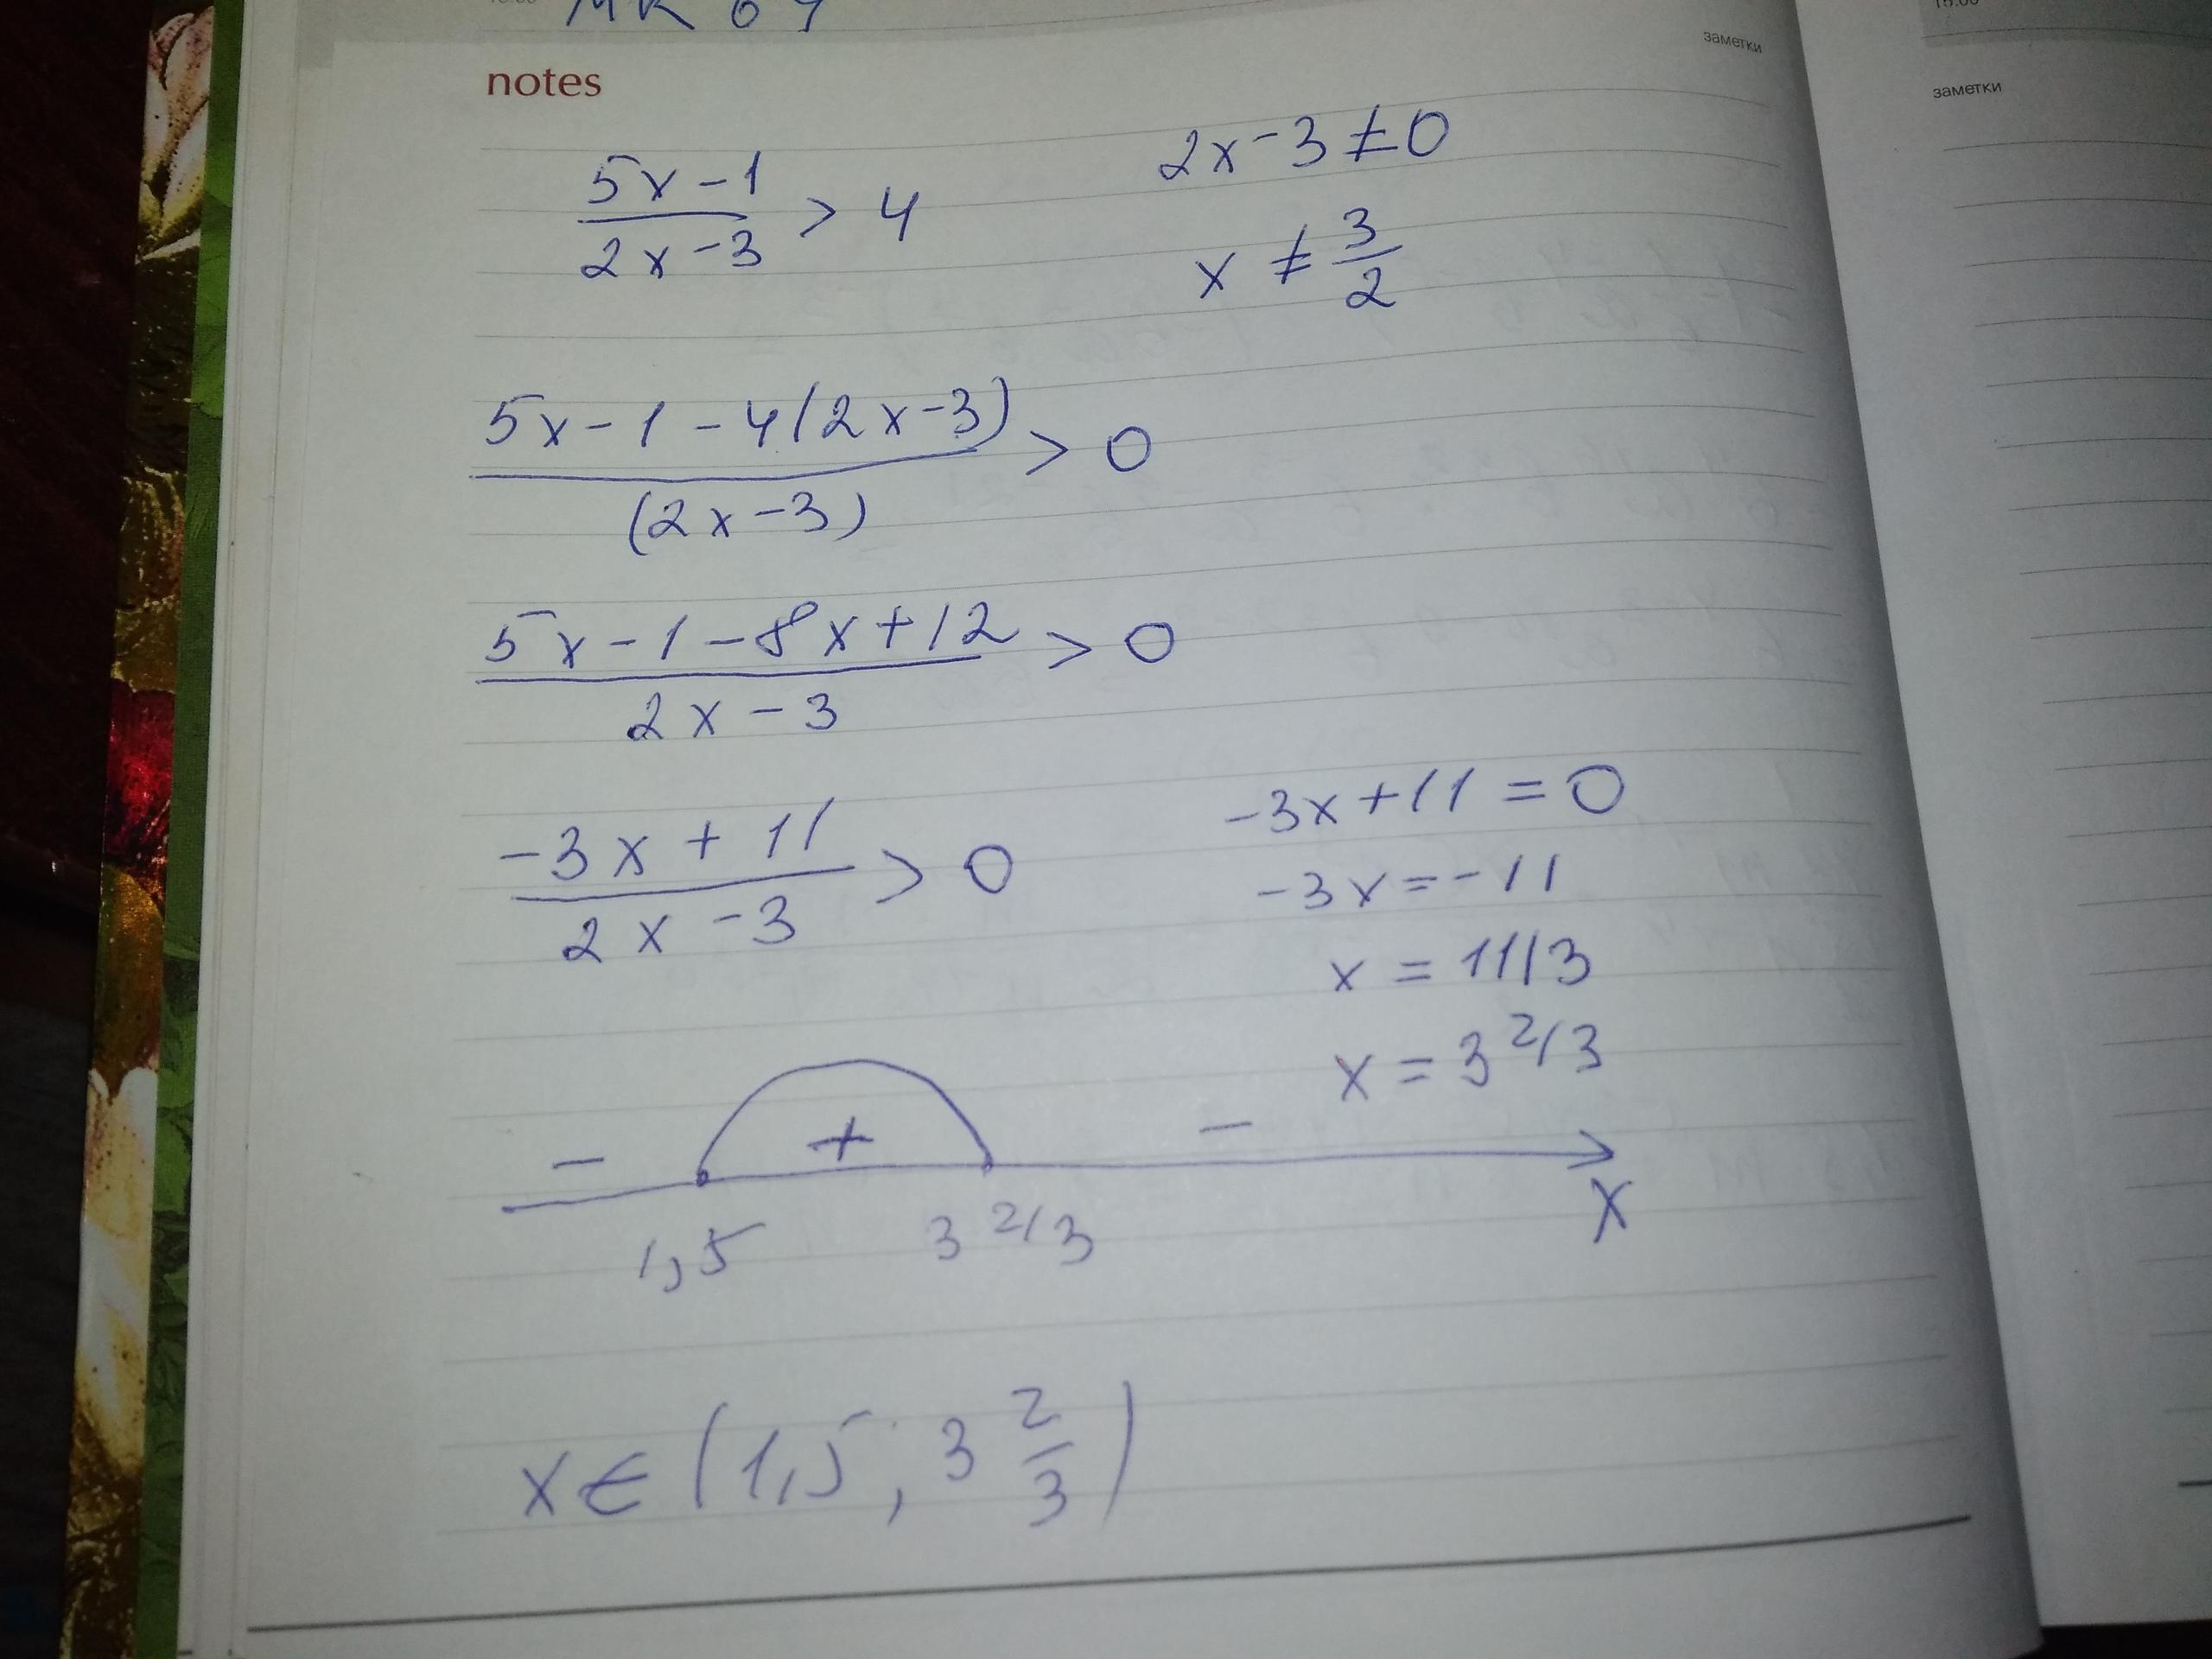 заметки
notes
заметки
(5x-1)/(2x-3) > 4
2x-3≠0
x ≠ 3/2
(5x-1-4(2x-3))/((2x-3)) > 0
(5x-1-8x+12)/(2x-3) > 0
(-3x+11)/(2x-3) > 0
-3x+11=0
-3x=-11
x = 11/3
x = 3 2/3
- + -
1,5 3 2/3 x
x∈(1,5; 3 2/3)